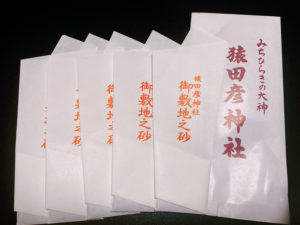 みちひらきの大神
猿田彦神社
猿田彦神社
御敷地之砂
御敷地之砂
御敷地之砂
御敷地之砂
之砂